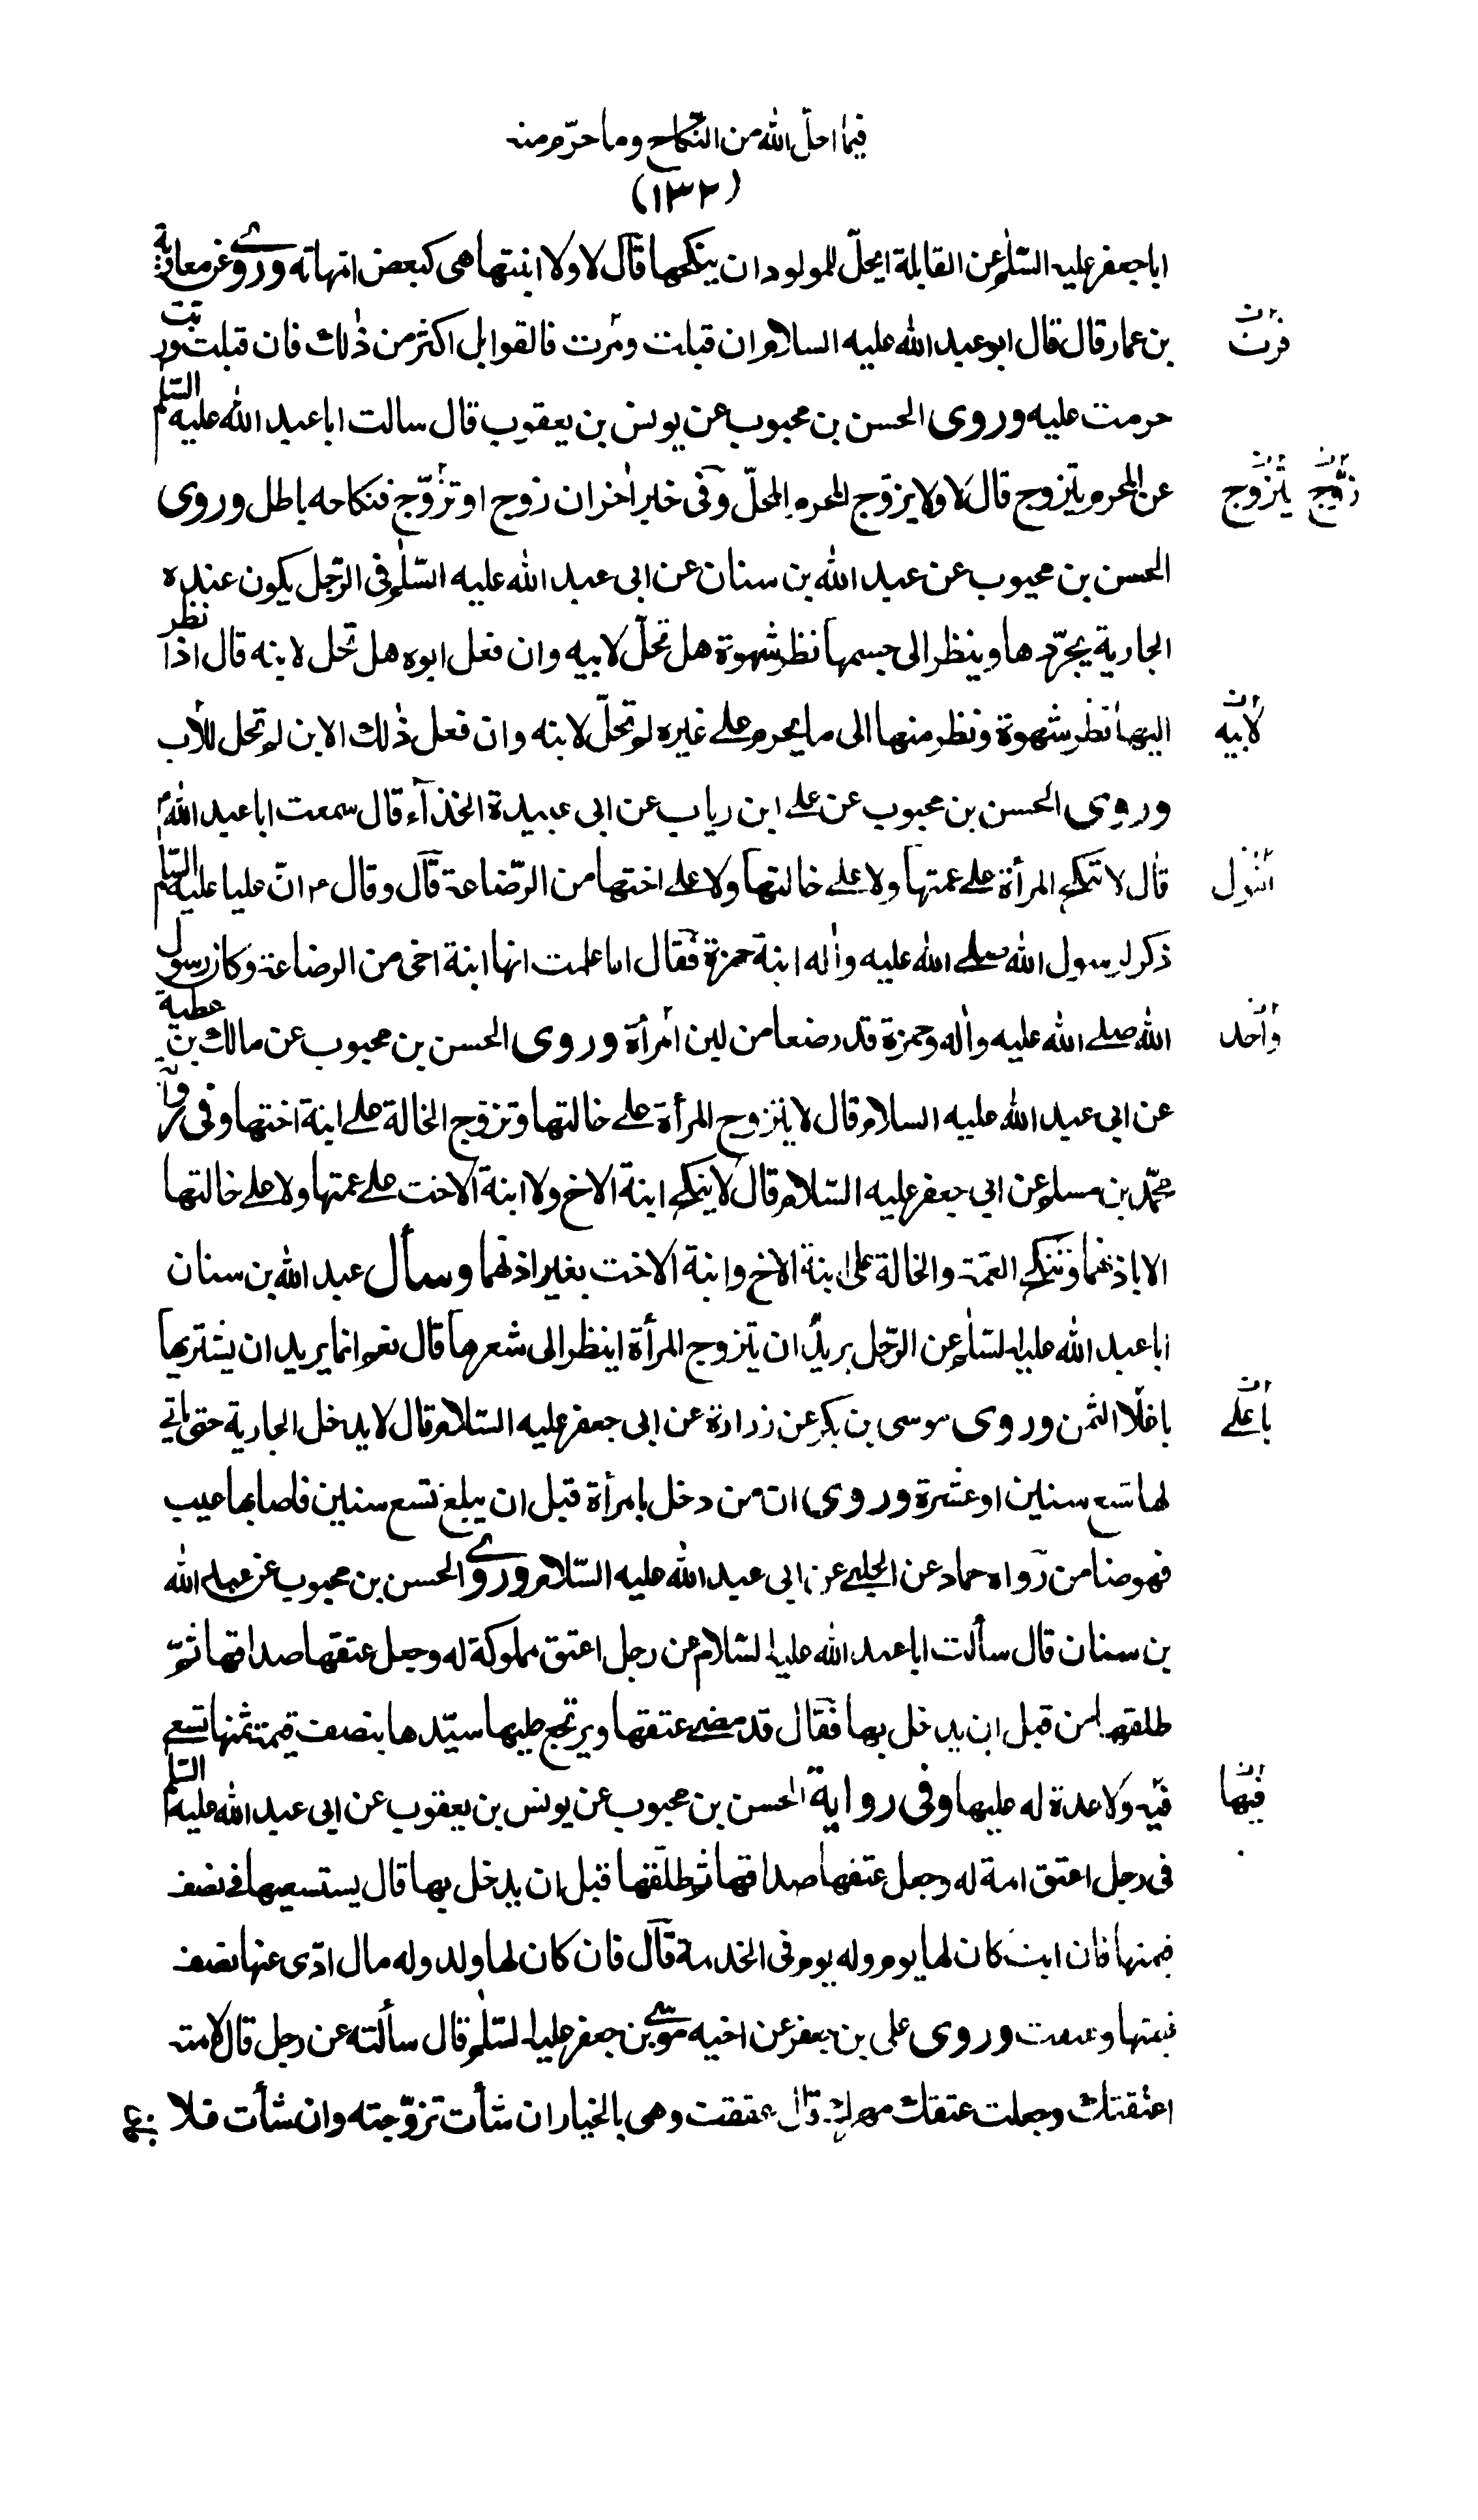 فيما احلّ الله من النكاح وما حرّم منه
(١٣٢)
ابا جعفر عليه السّلم عن القابلة ايحلّ للمولود ان ينكحها قال لا ولا ابنتها هى كبعض امّهاته وروى غر معاوية
بن عمار قال قال ابو عبد الله عليه السلام ان قبلت ومرت فالقوابل اكثر من ذلك فان قبلت وربت
فرت
حرمت عليه وروى الحسن بن محبوب عن يونس بن يعقوب قال سالت ابا عبد الله عليه السّلم
عن المحرم يتزوج قال لا ولا يزوّج المحرم المحلّ وفى خبر اخر ان زوج او تزوّج فنكاحه باطل وروى
يتزوج زوّج
الحسن بن محبوب عن عبد الله بن سنان عن ابى عبد الله عليه السّلم فى الرّجل يكون عنده
الجارية يجرّدها وينظر الى جسمها نظر شهوة هل تحلّ لابيه وان فعل ابوه هل تحل لابنه قال اذا نظر
اليها نظر شهوة ونظر منها الى ما يحرم على غيره لم تحلّ لابنه وان فعل ذلك الابن لم تحل للأب
لابيه
وروى الحسن بن محبوب عن على ابن رياب عن ابى عبيدة الحذآء قال سمعت ابا عبد الله ع
قال لا تنكح المرأة على عمتها ولا على خالتها ولا على اختها من الرّضاعة قال وقال ع انّ عليا عليه السّلم
ذكر لرسول الله صلى الله عليه واله ابنة حمزة فقال اما علمت انها ابنة اخى من الرضاعة وكان رسول
الله صلى الله عليه واله وحمزة قد رضعا من لبن امرأة وروى الحسن بن محبوب عن مالك بن عطية
واحد
عن ابى عبد الله عليه السلام قال لا يتزوج المرأة على خالتها وتزوّج الخالة على ابنة اختها وفى رواية
محمّد بن مسلم عن ابى جعفر عليه السّلام قال لا ينكح ابنة الاخ ولا ابنة الاخت على عمتها ولا على خالتها
الا باذنهما وتنكح العمّة والخالة على ابنة الاخ وابنة الاخت بغير اذنهما وسأل عبد الله بن سنان
ابا عبد الله عليه السّلم عن الرّجل يريد ان يتزوج المرأة اينظر الى شعرها قال نعم انما يريد ان يشتريها
باغلا الثمن وروى موسى بن بكر عن زرارة عن ابى جعفر عليه السّلام قال لا يدخل الجارية حتى ياتى
باعلى
لها تسع سنين او عشرة وروى ان من دخل بامرأة قبل ان يبلغ تسع سنين فاصابها عيب
فهو ضامن رواه حماد عن الحلبى عن ابى عبد الله عليه السّلام وروى الحسن بن محبوب عن عبد الله
بن سنان قال سألت ابا عبد الله عليه السّلام عن رجل اعتق مملوكة له وجعل عتقها صداقها ثمّ
طلقها من قبل ان يدخل بها فقال قد مضى عتقها ويرتجع عليها سيّدها بنصف قيمة ثمنها تسعى
فيه ولا عدة له عليها وفى رواية الحسن بن محبوب عن يونس بن يعقوب عن ابى عبد الله عليه السّلم
فيها
فى رجل اعتق امة له وجعل عتقها صداقها ثم طلّقها قبل ان يدخل بها قال يستسعيها فى نصف
قيمتها فان ابت كان لها يوم وله يوم فى الخدمة قال فان كان لها ولد وله مال ادّى عنها نصف
قيمتها وعتقت وروى على بن جعفر عن اخيه موسى بن جعفر عليه السّلم قال سألته عن رجل قال لامته
اعتقتك وجعلت عتقك مهرك قال عتقت وهى بالخيار ان شأت تزوّجته وان شأت فلا